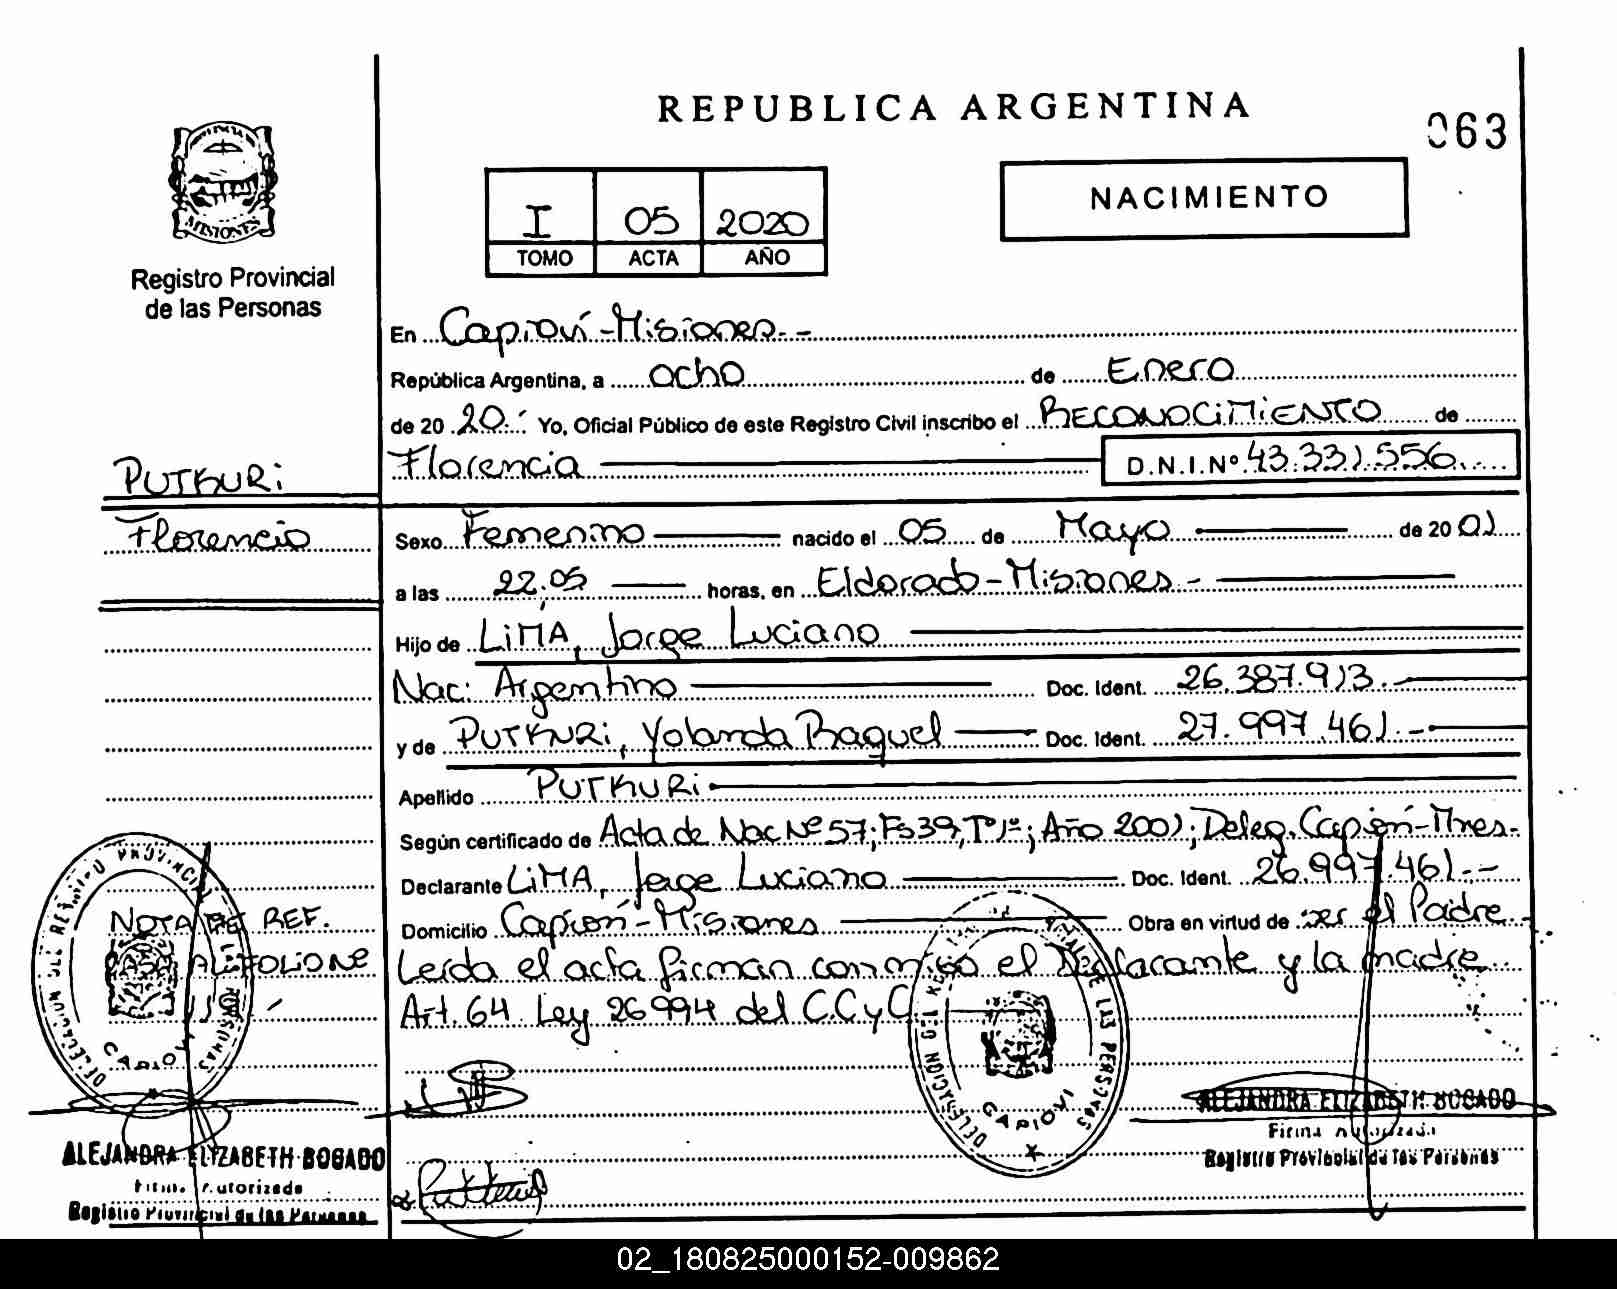 REPUBLICA ARGENTINA
063
MISIONES
Registro Provincial
de las Personas
I 05 2020
TOMO ACTA AÑO
NACIMIENTO
En Capioví-Misiones.-
República Argentina, a ocho de Enero
de 20 20.- Yo, Oficial Público de este Registro Civil inscribo el RECONOCIMIENTO de
Florencia D.N.I.Nº 43.331.556
PUTKURI
Florencia
Sexo Femenino nacido el 05 de Mayo de 20 01
a las 22:05 horas, en Eldorado-Misiones.-
Hijo de LIMA, Jorge Luciano
Nac: Argentino Doc. Ident. 26.387.913.-
y de PUTKURI, Yolanda Raquel Doc. Ident. 27.997.461.-
Apellido PUTKURI
Según certificado de Acta de Nac Nº 57; Fs 39, Tº 1º; Año 2001; Deleg. Capioví-Mnes.-
Declarante LIMA, Jorge Luciano Doc. Ident. 26.997.461.-
Domicilio Capioví-Misiones Obra en virtud de ser el Padre.
Leída el acta firman conmigo el Declarante y la madre
Art. 64 Ley 26994 del C.C y C
NOTA DE REF.
PASA AL FOLIO Nº
DELEGACION DEL REGISTRO PROVINCIAL DE LAS PERSONAS
CAPIOVI
DELEGACION DEL LAS PERSONAS
CAPIOVI
ALEJANDRA ELIZABETH BOGADO
Firma Autorizada
Registro Provincial de las Personas
ALEJANDRA ELIZABETH BOGADO
Firma Autorizada
Registro Provincial de las Personas
02_180825000152-009862